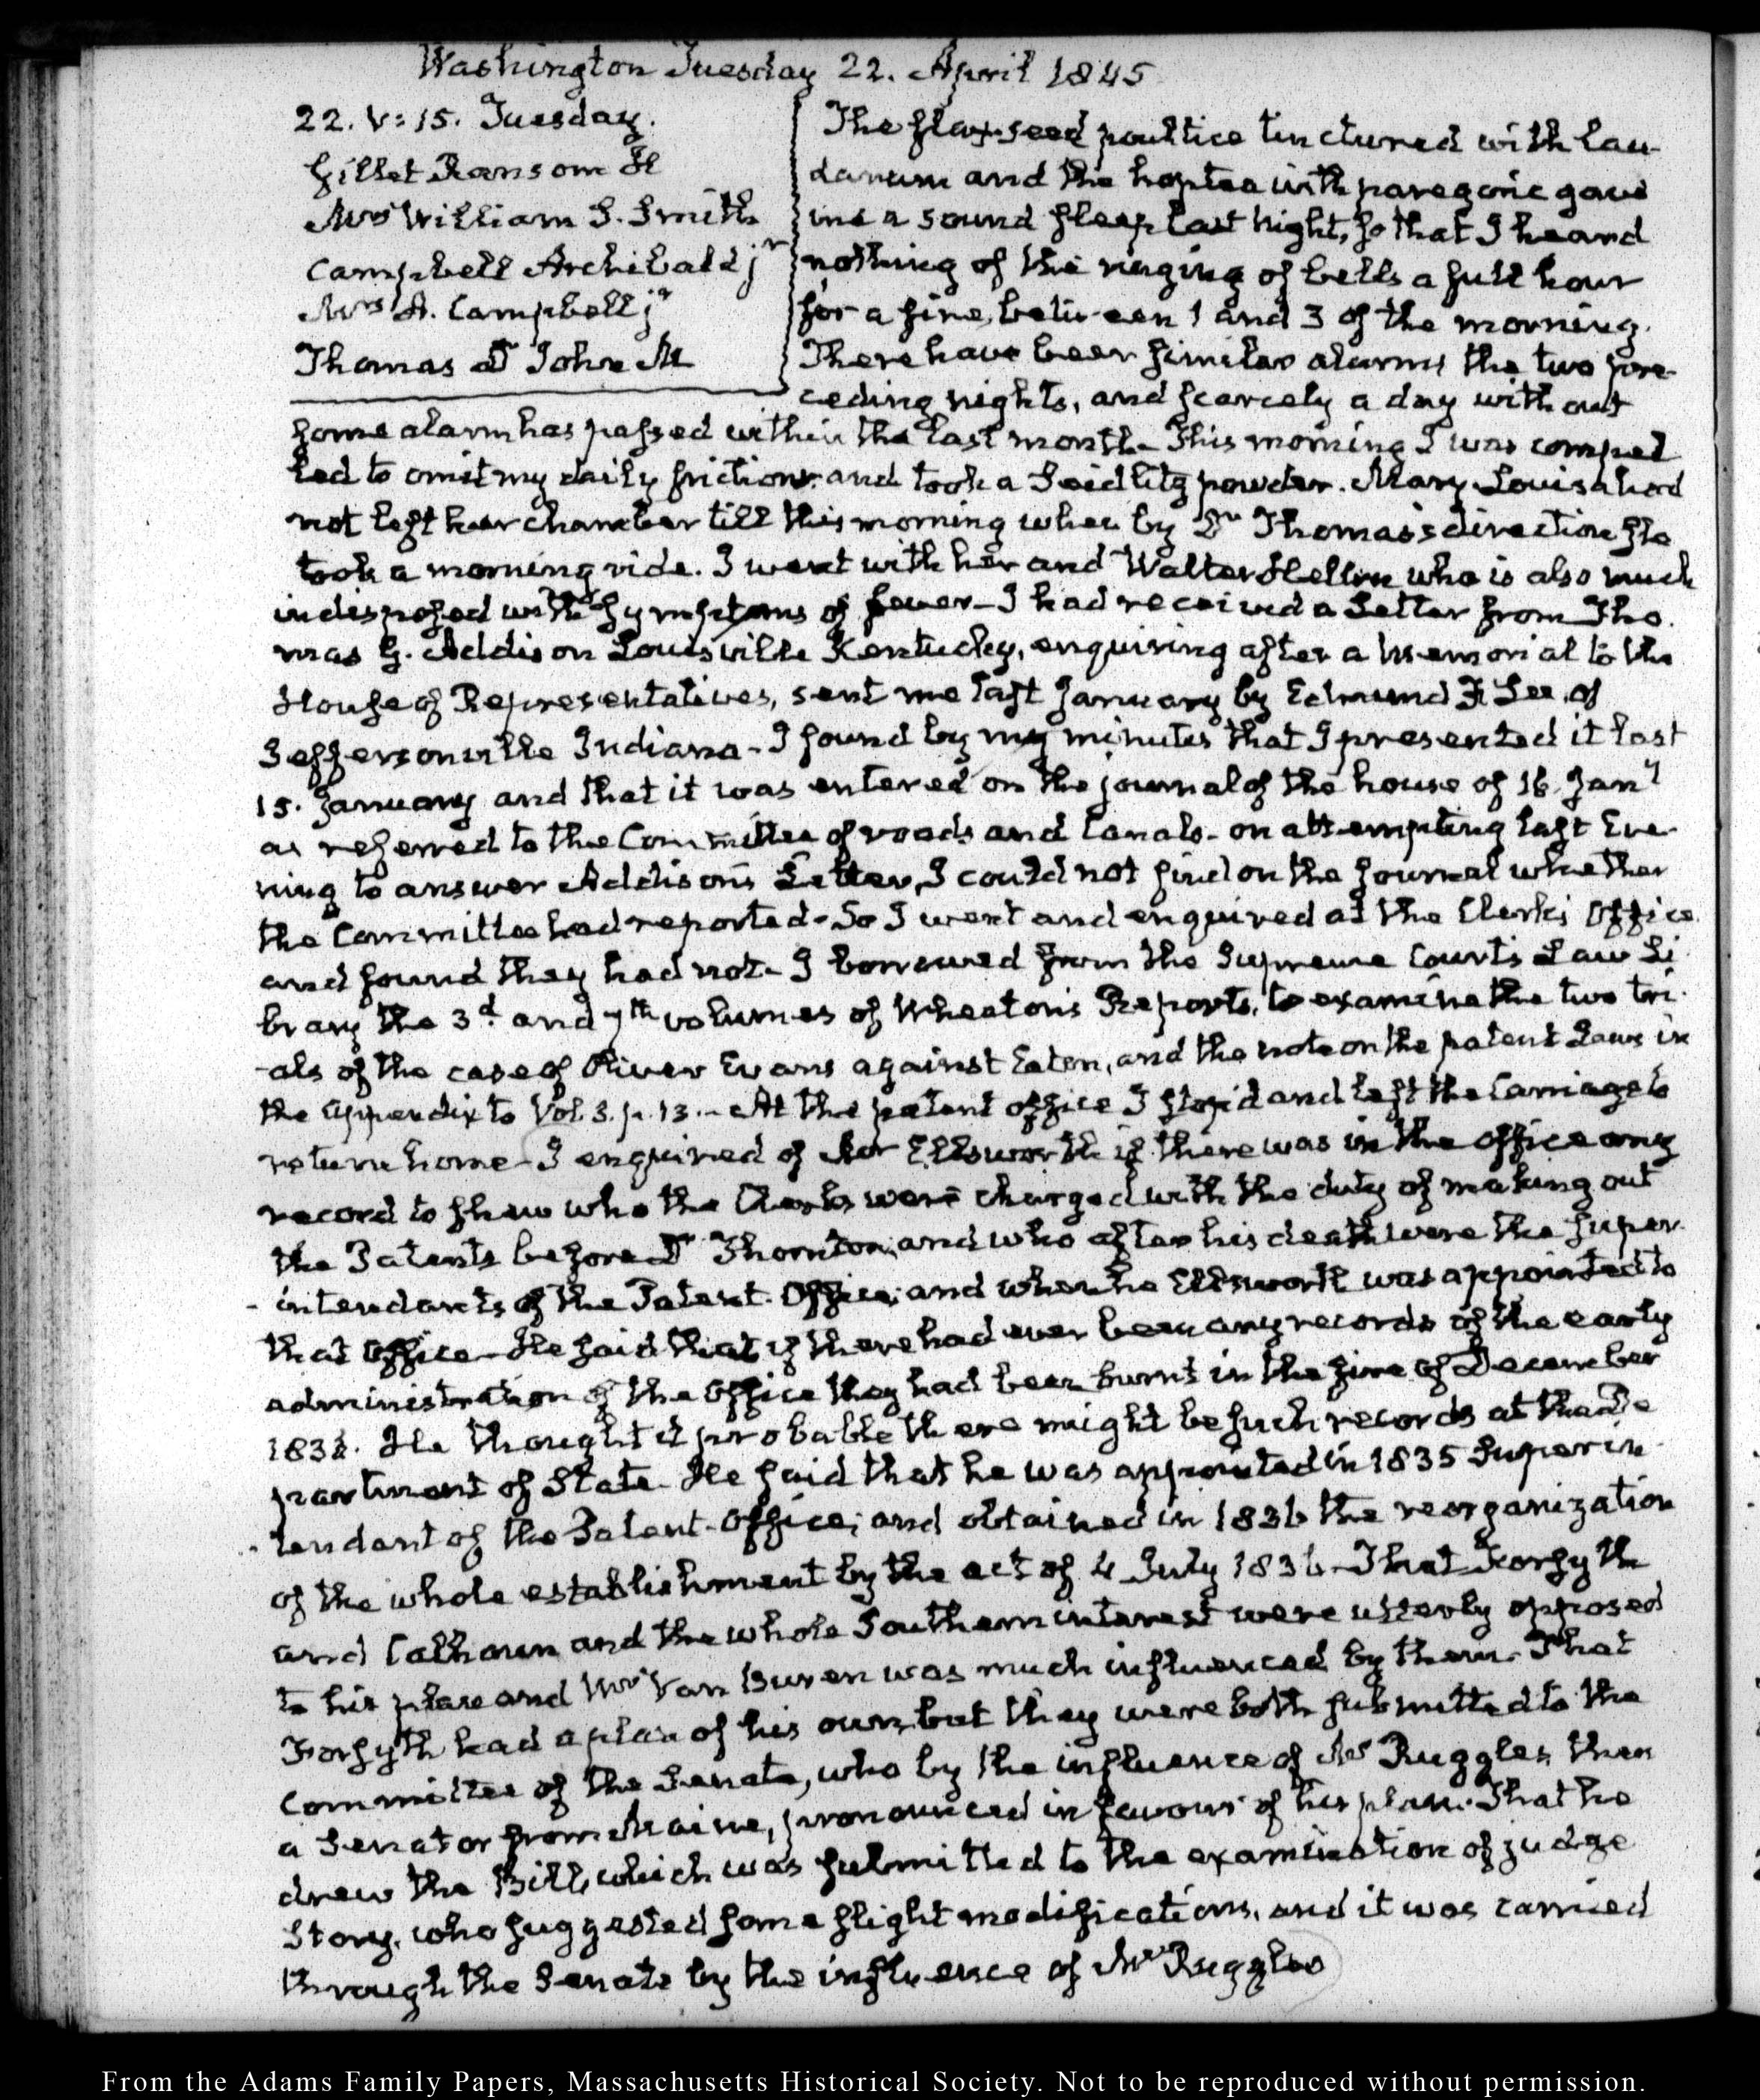 Washington Tuesday 22. April 1845
22. V: 15. Tuesday.
Gillet Ransom H
Mrs William S. Smith
Campbell Archibald jr
Mrs A. Campbell jr
Thomas Dr John M
The flax-seed poultice tinctured with lau-
danum and the hop tea with paregoric gave
me a sound sleep last night, so that I heard
nothing of the ringing of bells a full hour
for a fire, between 1 and 3 of the morning.
There have been similar alarms the two pre-
ceding nights, and scarcely a day without
some alarm has passed within the last month- This morning I was compel
led to omit my daily friction and took a Seidlitz powder. Mary Louisa had
not left her chamber till this morning when by Dr Thomas's direction she
took a morning ride. I went with her and Walter Hellen who is also much
indisposed with symptoms of fever- I had received a Letter from Tho.
mas G. Addison Louisville Kentucky, enquiring after a memorial to the
House of Representatives, sent me last January by Edmund F Lee, of
Jeffersonville Indiana- I found by my minutes that I presented it last
15. January and that it was entered on the journal of the house of 16 Jany
as referred to the Committee of roads and Canals- on attempting last Eve-
ning to answer Addison's Letter, I could not find on the Journal whether
the Committee had reported- So I went and enquired at the Clerk's Office
and found they had not- I borrowed from the Supreme Court's Law Li
brary the 3d and 7th volumes of Wheaton's Reports, to examine the two tri-
-als of the case of Oliver Evans against Eaton, and the note on the patent Laws in
the appendix to Vol. 3. p. 13.- At the patent office I stop'd and left the Carriage to
return home- I enquired of Mr Ellsworth if there was in the office any
record to shew who the Clerks were charged with the duty of making out
the Patents before Dr Thornton; and who after his death were the super-
-intendants of the Patent-Office; and when he Ellsworth was appointed to
that Office- He said that if there had ever been any records of the early
administration of the Office they had been burnt in the fire of December
1836. He thought it probable there might be such records at the De
partment of State- He said that he was appointed in 1835 Superin
tendant of the Patent-Office; and obtained in 1836 the reorganization
of the whole establishment by the act of 4 July 1836- That Forsyth
and Calhoun and the whole Southern interest were utterly opposed
to his plan and Mr Van Buren was much influenced by them- That
Forsyth had a plan of his own, but they were both submitted to the
Committee of the Senate, who by the influence of Mr Ruggles then
a Senator from Maine, pronounced in favour of his plan. That he
drew the Bill, which was submitted to the examination of judge
Story, who suggested some slight modifications, and it was carried
through the Senate by the influence of Mr Ruggles
From the Adams Family Papers, Massachusetts Historical Society. Not to be reproduced without permission.